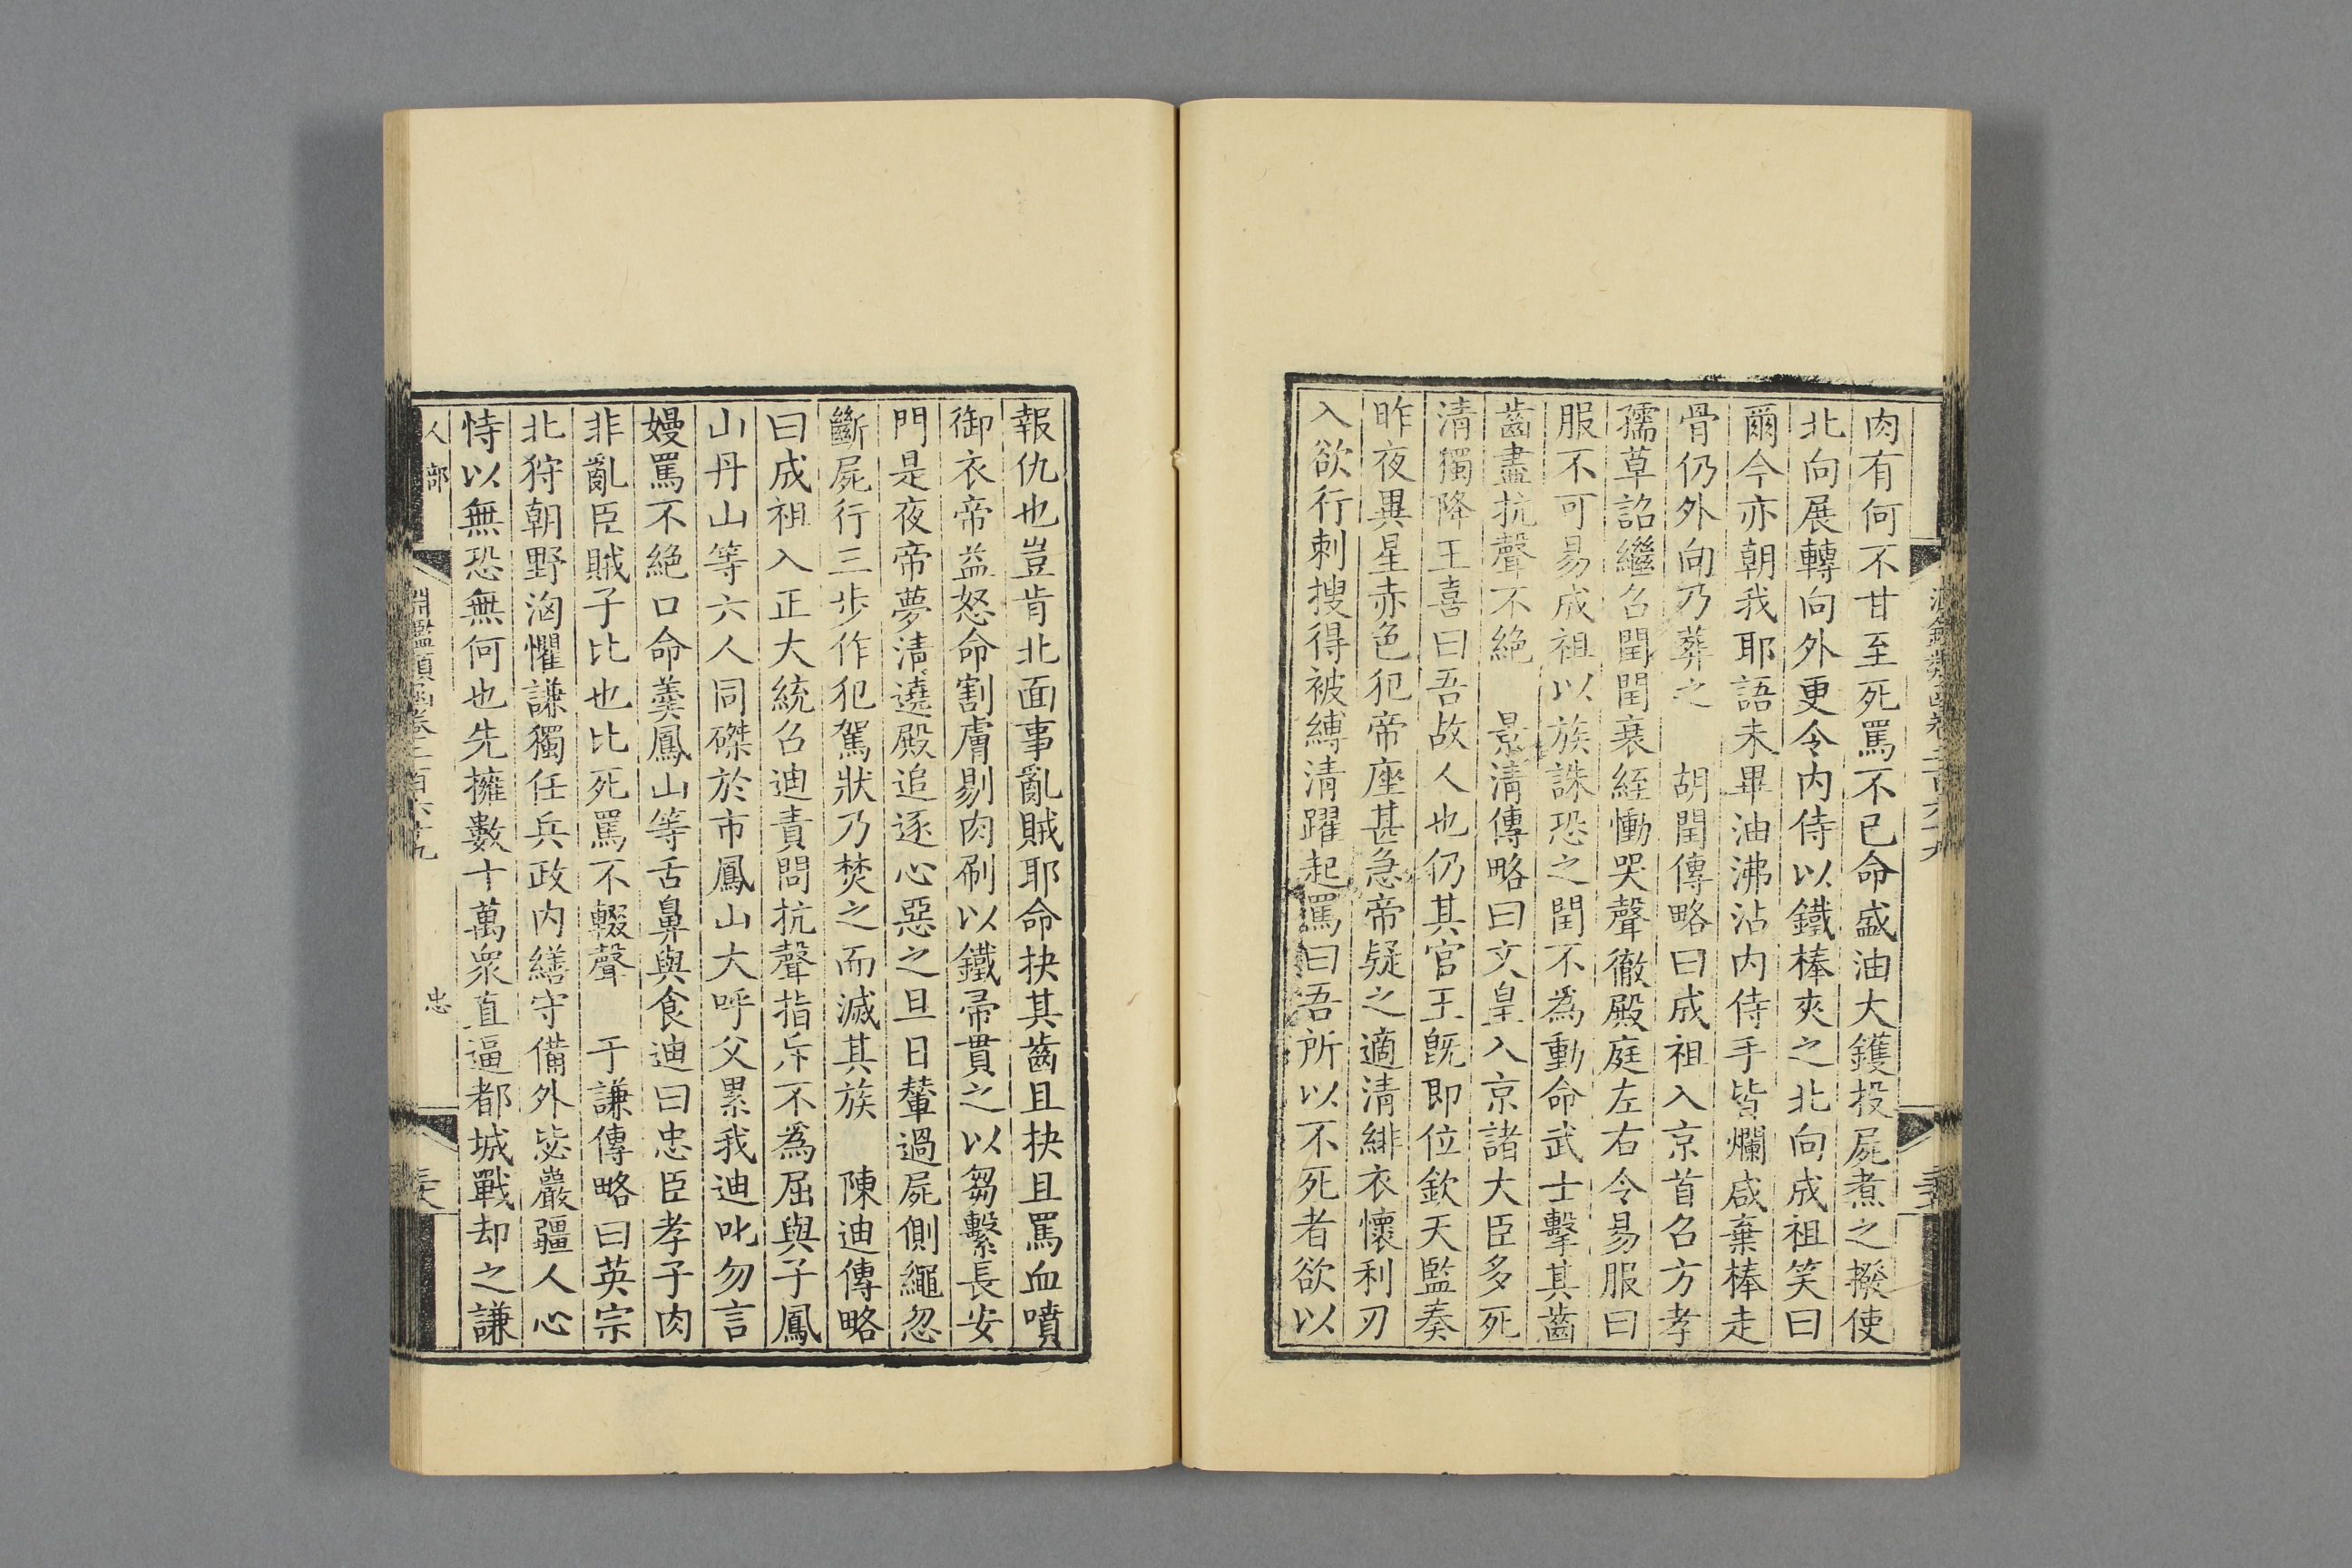 肉有何不甘至死罵不已命盛油大鑊投屍煮之撥使
北向展轉向外更令内侍以鐵棒夾之北向成祖笑曰
爾今亦朝我耶語未畢油沸沾内侍手皆爛咸棄棒走
骨仍外向乃葬之　胡閏傳略曰成祖入京首召方孝
孺草詔繼召閏閏衰絰慟哭聲徹殿庭左右令易服曰
服不可易成祖以族誅恐之閏不為動命武士擊其齒
齒盡抗聲不絶　景清傳略曰文皇入京諸大臣多死
清獨降王喜曰吾故人也仍其官王旣即位欽天監奏
昨夜異星赤色犯帝座甚急帝疑之適清緋衣懷利刃
入欲行刺搜得被縛清躍起罵曰吾所以不死者欲以
報仇也豈肯北面事亂賊耶命抉其齒且抉且罵血噴
御衣帝益怒命割膚剔肉刷以鐵帚貫之以芻繫長安
門是夜帝夢清遶殿追逐心惡之旦日輦過屍側繩忽
斷屍行三歩作犯駕狀乃焚之而滅其族　陳迪傳略
曰成祖入正大統召迪責問抗聲指斥不為屈與子鳳
山丹山等六人同磔於市鳳山大呼父累我迪叱勿言
嫚罵不絶口命羹鳳山等舌鼻與食迪曰忠臣孝子肉
非亂臣賊子比也比死罵不輟聲　于謙傳略曰英宗
北狩朝野洶懼謙獨任兵政内繕守備外毖嚴疆人心
恃以無恐無何也先擁數十萬衆直逼都城戰却之謙
人部
淵鑑類函卷二百六十九
忠